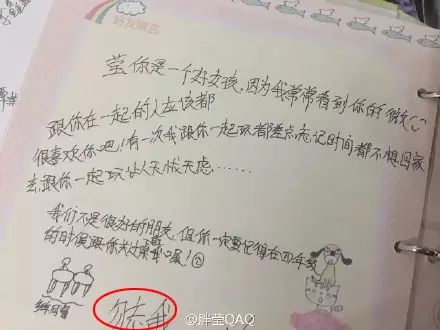 好友留言
莹你是一个好女孩,因为我常常看到你的微心
跟你在一起的人应该都
很喜欢你吧!有一次我跟你一起玩都差点忘记时间都不想回家
去,跟你一起玩让人无忧无虑……
我们不是很好的朋友,但你一定要记得在四年级
的时候跟你
喔!
勿忘我
@胖莹QAQ